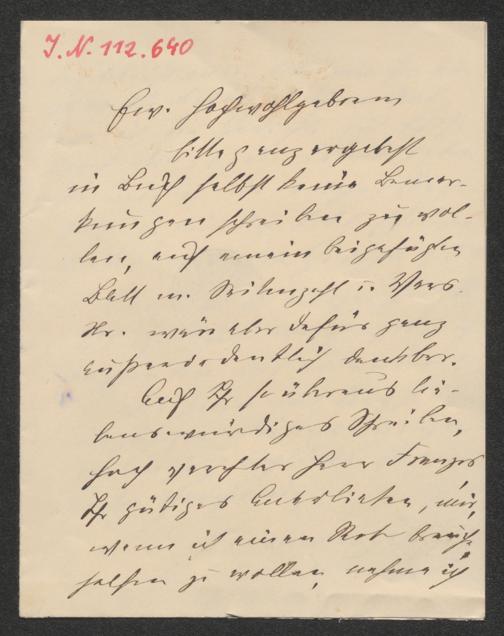 J. N. 112.640
Ew. Hochwohlgeboren
bitte ganz ergebenst
in Buch selbst keine Bemer-
kungen schreiben zu wol-
len, auf einem beigefügten
Blatt m. Seitenzahl u. Vers
Nr. wäre aber dafür ganz
außerordentlich dankbar.
Auf Ihr so überaus lie-
benswürdiges Schreiben,
hoch verehrter Herr Franzos
Ihr gütiges Anerbieten, mir,
wenn ich einen Rat brauche
helfen zu wollen, nehme ich